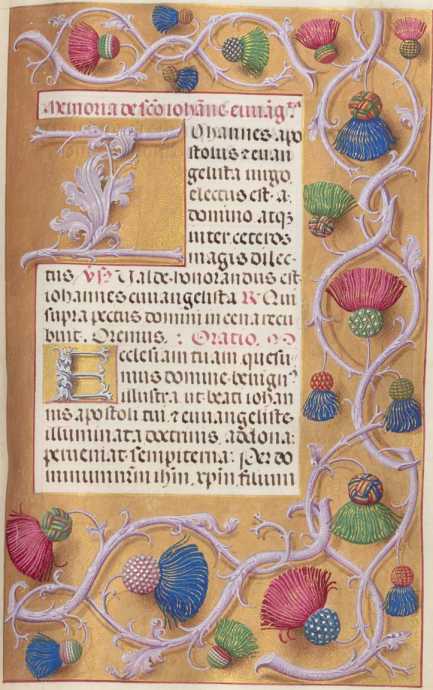 Memoria de scō iohāne euuāgᵃ
Iohannes apo
stolus ⁊ euan
gelista uirgo
electus est · a ·
domino atq3
inter ceteros
magis dilec
tus Vs̄ Ualde honorandus est
iohannes euuangelista R̄ Qui
supra pectus domini in cena recu
buit. Oremus. : Oratio.
Ecclesiam tuam quesu
mus domine benign⁹
illustra ut beati iohan
nis apostoli tui ⁊ euuangeliste
illuminata doctrinis, ad dona
perueniat sempiterna : Per do
minum nrm̄ ihm̄. xpm̄ filium